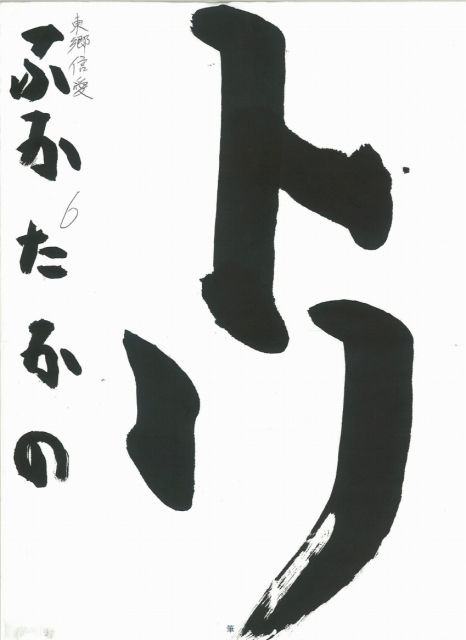 トリ
東郷信愛
6
ふかたかの
筆